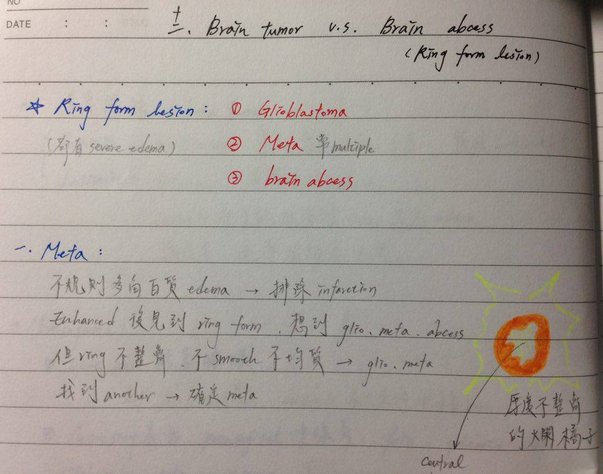 NO
DATE : :
十二. Brain tumor v.s. Brain abcess
(Ring form lesion)
☆ Ring form lesion: ① Glioblastoma
(都有 severe edema) ② Meta 常multiple
③ brain abcess
一. Meta:
不規則多向白質 edema → 排除 infarction
Enhanced 後見到 ring form, 想到 glio. meta. abcess
但 ring 不整齊. 不 smooth 不均質 → glio. meta
找到 another → 確定 meta
厚度不整齊
的火爛橘子
central